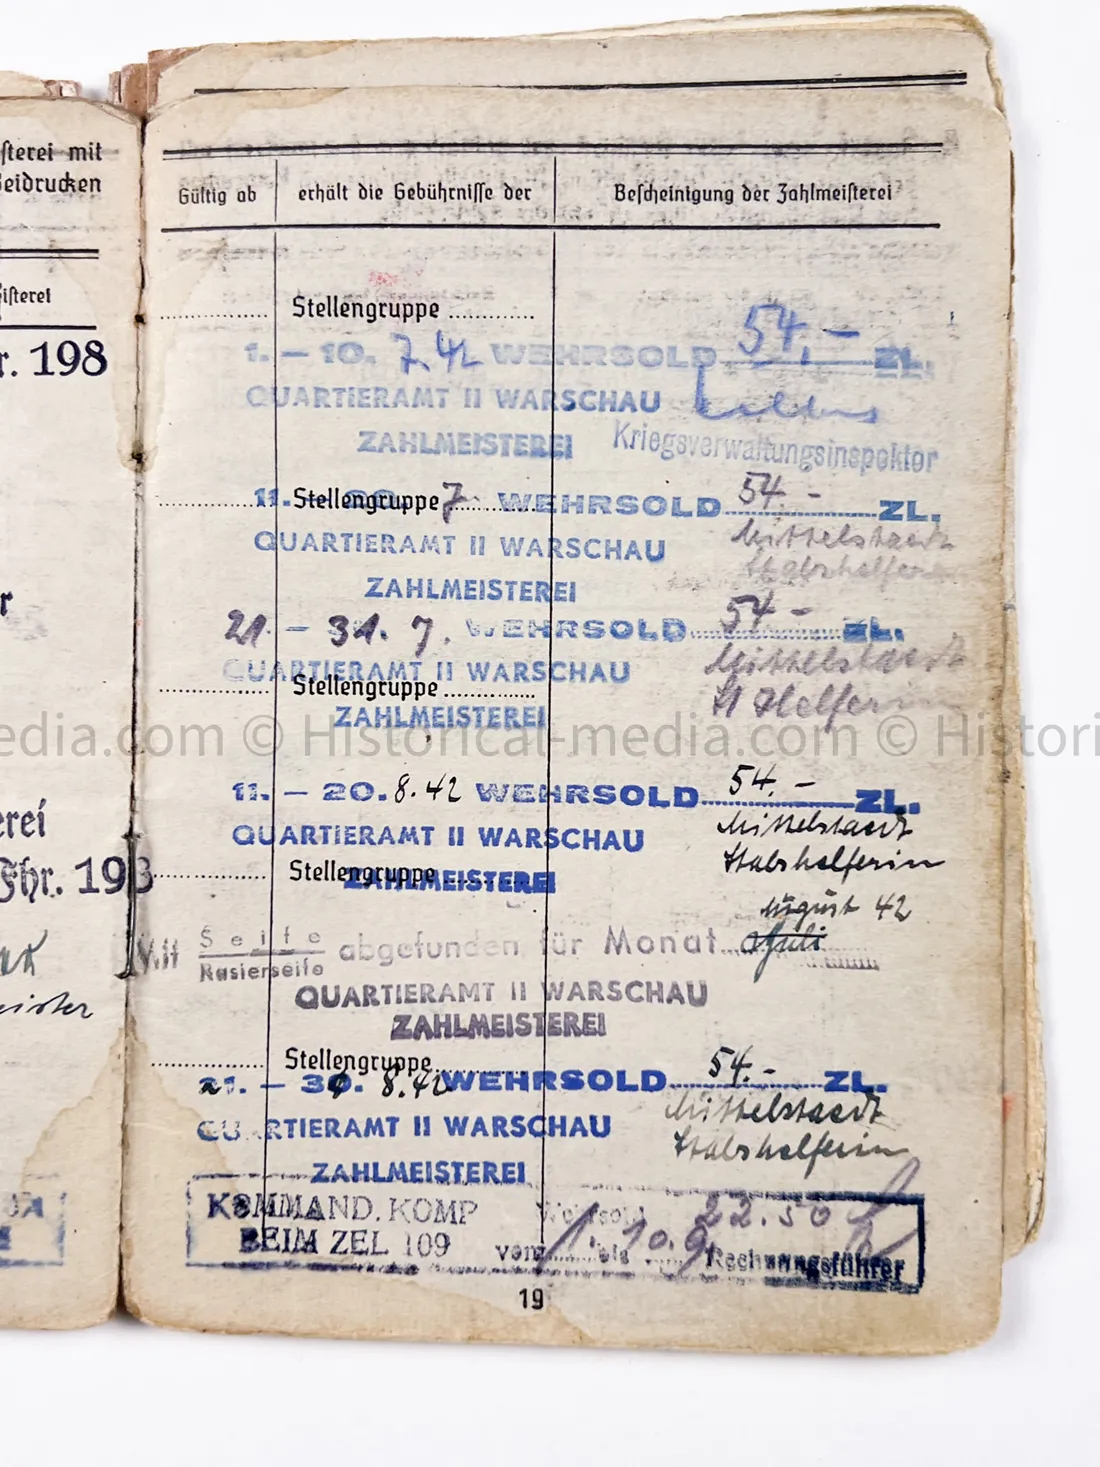 ſterei mit
Beidrucken
iſterei
r. 198
r
erei
Fhr. 198
Gültig ab
erhält die Gebührniſſe der
Beſcheinigung der Zahlmeiſterei
Stellengruppe
1. – 10. 7.42 WEHRSOLD 54,– ZL.
QUARTIERAMT II WARSCHAU
ZAHLMEISTEREI Kriegsverwaltungsinspektor
11. Stellengruppe 7. WEHRSOLD 54.- ZL.
QUARTIERAMT II WARSCHAU Mittelstaedt
ZAHLMEISTEREI Stabshelferin
21. – 31. 7. WEHRSOLD 54 - ZL.
QUARTIERAMT II WARSCHAU Mittelstaedt
Stellengruppe St Helferin
ZAHLMEISTEREI
edia.com © Historical-media.com © Histori
11. – 20. 8.42 WEHRSOLD 54.- ZL.
QUARTIERAMT II WARSCHAU Mittelstaedt
Stellengruppe Stabshelferin
ZAHLMEISTEREI
August 42
Mit Seife abgefunden für Monat Juli
Rasierseife
QUARTIERAMT II WARSCHAU
ZAHLMEISTEREI
Stellengruppe
21. – 30. 8.42 WEHRSOLD 54.- ZL.
QUARTIERAMT II WARSCHAU Mittelstaedt
ZAHLMEISTEREI Stabshelferin
KOMMAND. KOMP Wehrsold 22.50
BEIM ZEL 109 vom 1. bis 10.9. Rechnungsführer
19